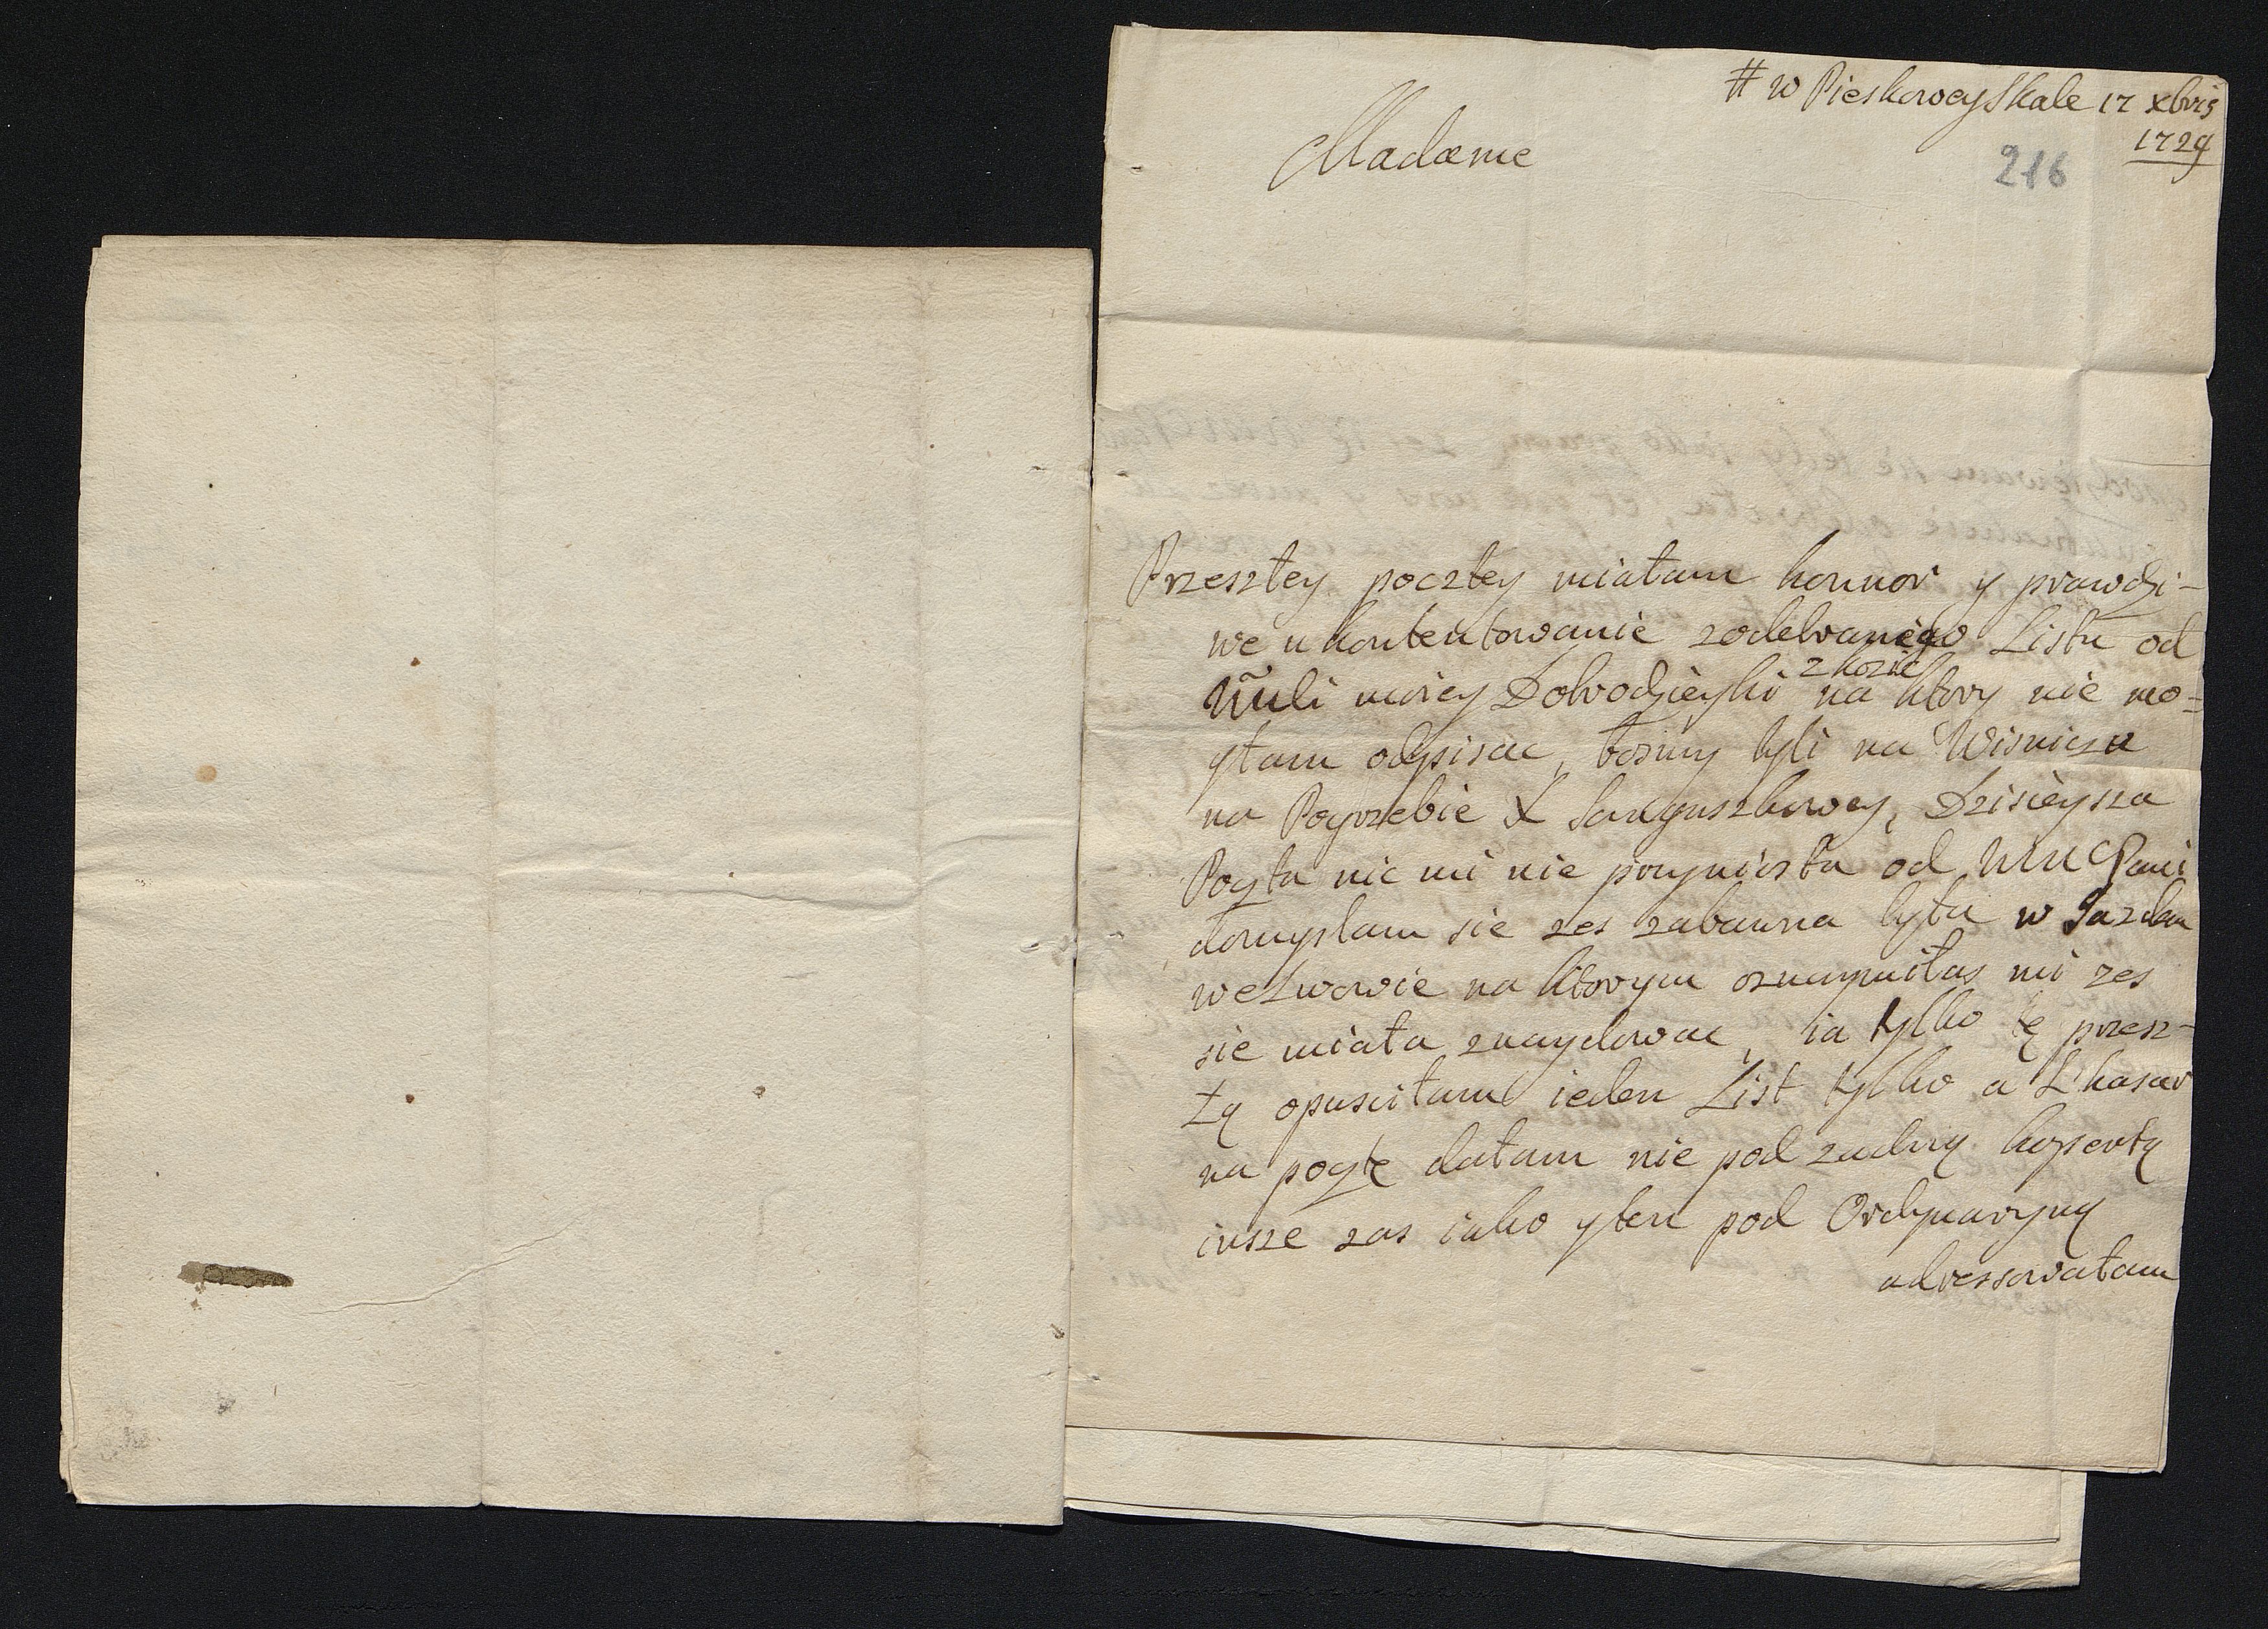 # w Pieskowey Skale 17 xbris
1729
216
Madame
Przeszłey poczty miałam honnor y prawdzi-
we ukontentowanie zodebranego Listu od
moiey Dobrodzieyki na ktory nie mo=
głam odpisac, bosmy byli na Wisniczu
na Pogrzebie X Sanguszkowey, Dzisieysza
Poczta nic mi nie przyniosła od WMCPani
domyslam sie zes zabawna była w
we Lwowie na ktorym oznaymiłas mi zes
sie miała znaydowac, ia tylko tę przesz-
łą opusciłam ieden List tylko a
na pocztę dałam nie pod zadną kopertą
insze zas iako y ten pod Ordynaryną
adressowałam